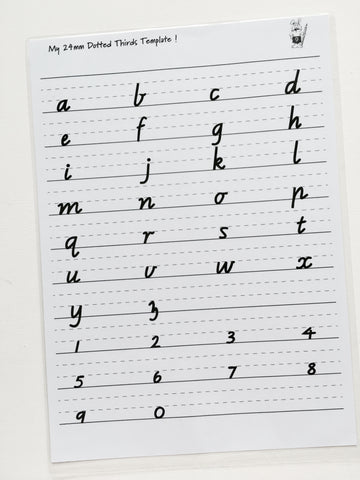 My 24mm Dotted Thirds Template !
a b c d
e f g h
i j k l
m n o p
q r s t
u v w x
y z
1 2 3 4
5 6 7 8
9 0